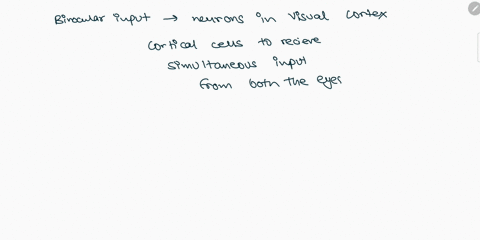 Binocular input → neurons in visual cortex
cortical cells to recieve
simultaneous input
from both the eyes